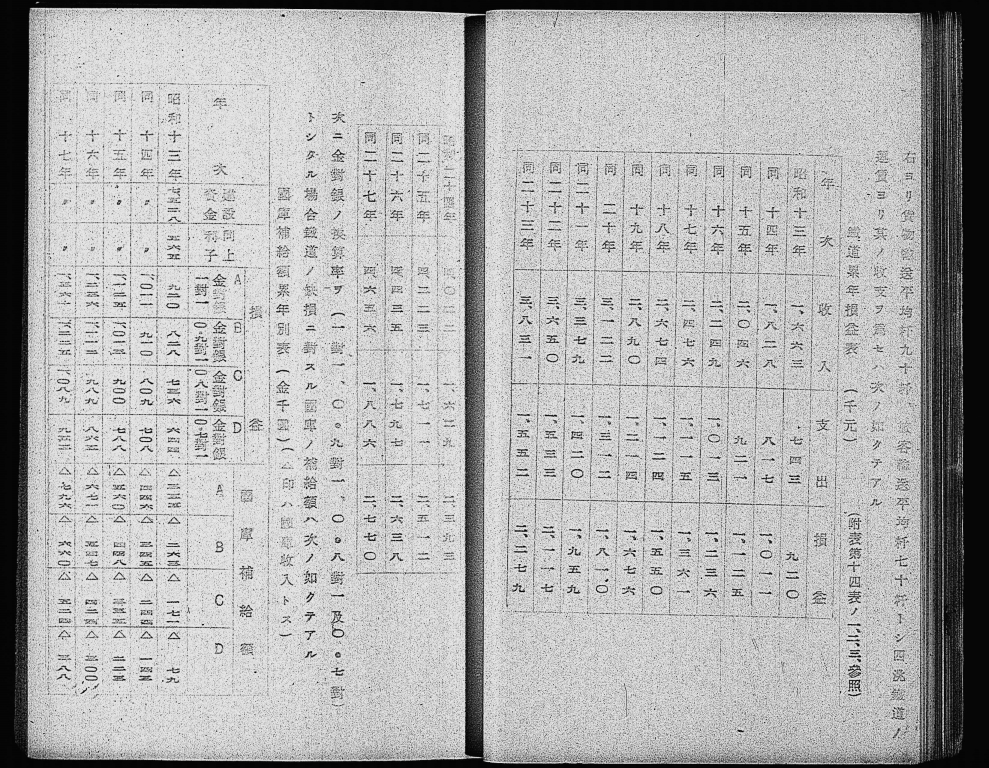 右ヨリ貨物輸送平均一九十粁、旅客輸送平均粁七十粁トシ四洮鐵道ノ
運賃ヨリ其ノ收支ヲ爲セハ次ノ如クテアル
鐵道累年損益表 (千元) (附表第十四表ノ一、二、三、參照)
年次 收入 支出 損益
昭和十三年 一、六六三 七四三 九二〇
同 十四年 一、八二八 八一七 一、〇一一
同 十五年 二、〇四六 九二一 一、一二五
同 十六年 二、二四九 一、〇一三 一、二三六
同 十七年 二、四七六 一、一一五 一、三六一
同 十八年 二、六七四 一、一二四 一、五五〇
同 十九年 二、八九〇 一、二一四 一、六七六
同 二十年 三、一二二 一、三一二 一、八一〇
同二十一年 三、三七九 一、四二〇 一、九五九
同二十二年 三、六五〇 一、五三三 二、一一七
同二十三年 三、八三一 一、五五二 二、二七九
昭和二十四年 四、〇二二 一、六二九 二、三九三
同二十五年 四、二二三 一、七一一 二、五一二
同二十六年 四、四三五 一、七九七 二、六三八
同二十七年 四、六五六 一、八八六 二、七七〇
次ニ金對銀ノ換算率ヲ(一對一、〇。九對一、〇。八對一及〇。七對)
トシタル場合鐵道ノ缺損ニ對スル國庫ノ補給額ハ次ノ如クテアル
國庫補給額累年別表(金千圓)(△印ハ國庫收入トス)
年次 建設資金 同上利子 損益 A 金對銀一對一 B 金對銀〇.九對一 C 金對銀〇.八對一 D 金對銀〇.七對一 國庫補給額 A B C D
昭和十三年 七五二八 五六五 九二〇 八二八 七三六 六四四 △三五五 △二六三 △一七一 △七九
同 十四年 〃 〃 一、〇一一 九一〇 八〇九 七〇八 △四四六 △三四五 △二四四 △一四三
同 十五年 〃 〃 一、一二五 一、〇一三 九〇〇 七八八 △五六〇 △四四八 △三三五 △二二三
同 十六年 〃 〃 一、二三六 一、一一二 九八九 八六五 △六七一 △五四七 △四二四 △三〇〇
同 十七年 〃 〃 一、三六一 一、二二五 一、〇八九 九五三 △七九六 △六六〇 △五二四 △三八八